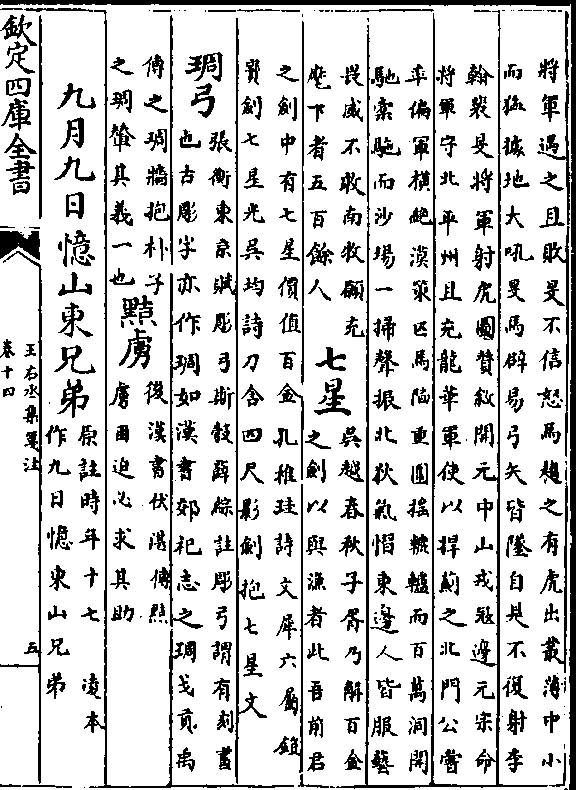 將軍遇之且敗旻不信怒馬趨之有虎出叢薄中小
而猛據地大吼旻馬辟易弓矢皆墜自是不復射李
翰裴旻將軍射虎圖贊敘開元中山戎寇邊元宗命
將軍守北平州且充龍華軍使以捍薊之北門公嘗
率偏軍橫絶漠策匹馬陷重圍搖轆轤而百萬洞開
馳槖駞而沙場一掃聲振北狄氣慴東邊人皆服藝
畏威不敢南牧願充
麾下者五百餘人
七星
吳越春秋子胥乃解百金
之劍以與漁者此吾前君
之劍中有七星價值百金孔稚珪詩文犀六屬鎧
寶劍七星光吳均詩刀含四尺影劍抱七星文
琱弓
張衡東京賦彫弓斯彀薛綜註彫弓謂有刻畫
也古彫字亦作琱如漢書郊祀志之琱戈貢禹
傳之琱牆抱朴子
之琱飾其義一也
黠虜
後漢書伏湛傳黠
虜困迫必求其助
九月九日憶山東兄弟
原註時年十七　凌本
作九日憶東山兄弟
欽定四庫全書
王右丞集箋注
卷十四
五